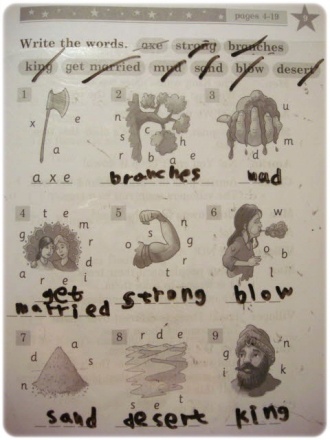 pages 4-18
Write the words. axe strong branches
king get married mud sand blow desert
1 2 3
x e a
n s c h r b a e
u d m
axe branches mud
4 5 6
t e m g r d a r e i
s n o g r t
w o b l
get
married strong blow
7 8 9
d a s n
r d e s e t
n g i k
sand desert king